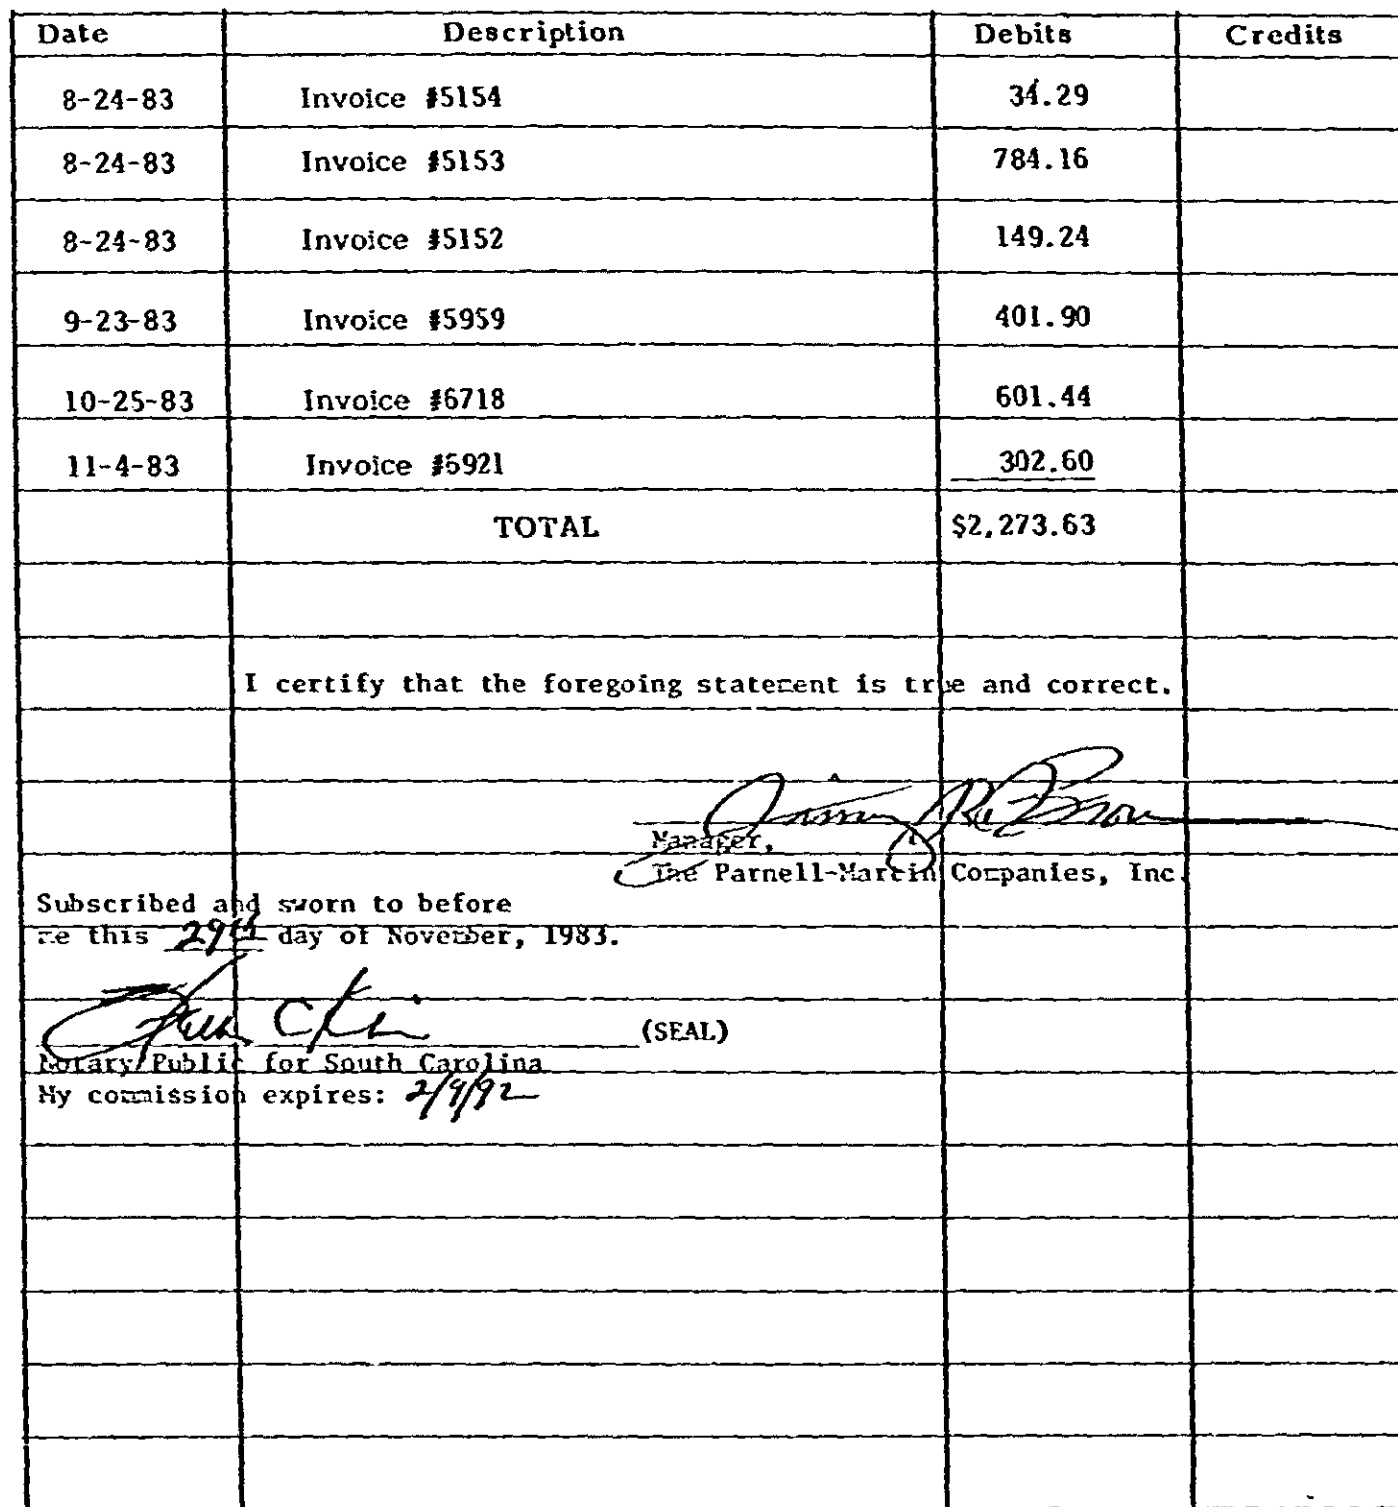 Date Description Debits Credits
8-24-83 Invoice #5154 34.29
8-24-83 Invoice #5153 784.16
8-24-83 Invoice #5152 149.24
9-23-83 Invoice #5959 401.90
10-25-83 Invoice #6718 601.44
11-4-83 Invoice #5921 302.60
TOTAL $2,273.63
I certify that the foregoing statement is true and correct.
Manager,
The Parnell-Martin Companies, Inc.
Subscribed and sworn to before
me this 29th day of November, 1983.
(SEAL)
Notary Public for South Carolina
My commission expires: 2/9/92